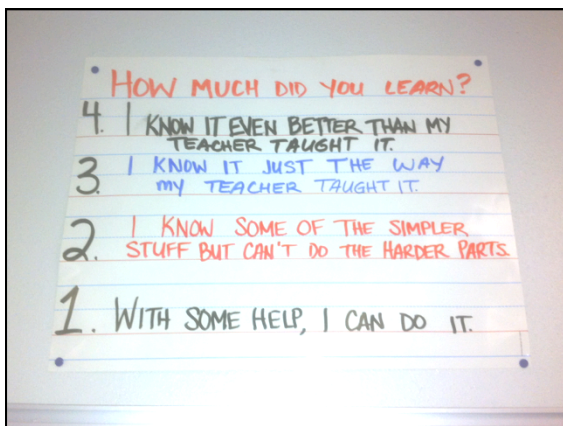 HOW MUCH DID YOU LEARN?
4. I KNOW IT EVEN BETTER THAN MY
TEACHER TAUGHT IT.
3. I KNOW IT JUST THE WAY
MY TEACHER TAUGHT IT.
2. I KNOW SOME OF THE SIMPLER
STUFF BUT CAN'T DO THE HARDER PARTS.
1. WITH SOME HELP, I CAN DO IT.